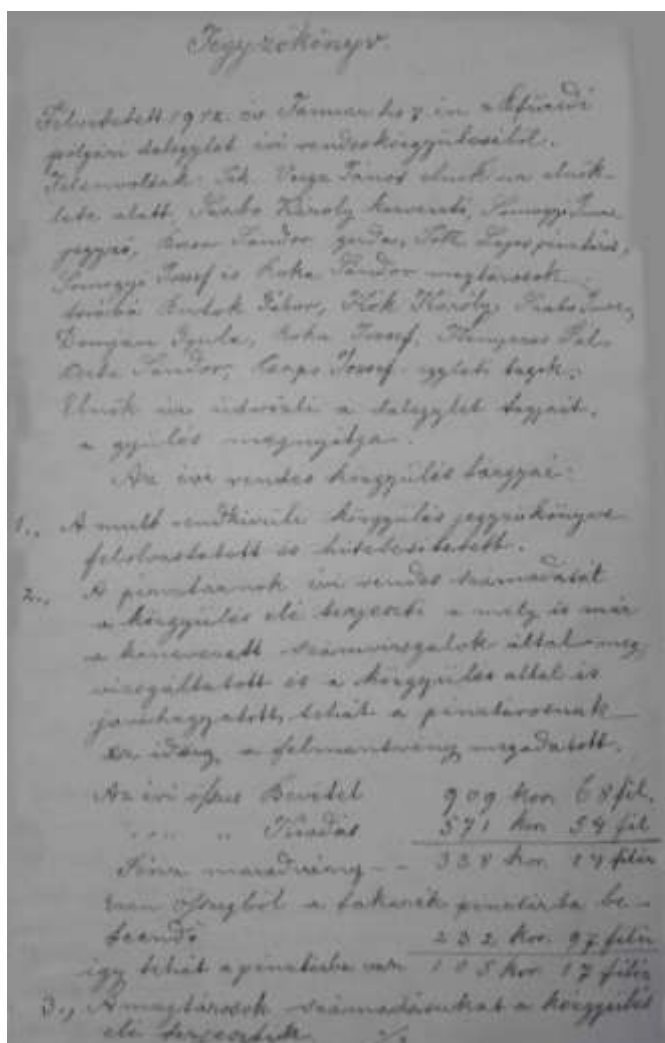 Jegyzőkönyv.
Felvétetett 1912. év Januar hó 7. én a
polgári dalegylet évi rendes közgyüléséből.
Jelenvoltak: Tek. Varga János elnök ur elnök-
lete alatt, Szabó Károly karvezető, Somogyi Imre
jegyző, Sándor gazda, Tóth Lajos pénztáros,
Somogyi József és Sándor
továbbá Gábor, Károly, Szabó Imre,
Gyula, József, Pál,
Sándor, József egyleti tagok.
Elnök ur üdvözli a dalegylet tagjait,
a gyülés megnyitja.
Az évi rendes közgyülés tárgyai:
1., A mult rendkivüli közgyülés jegyzőkönyve
felolvastatott és hitelesitetett.
2., A pénztárnok évi rendes számadását
a közgyülés elé terjeszti a mely is már
a kinevezett számvizsgálok által meg-
vizsgáltatott és a közgyülés által is
jóváhagyatott, tehát a pénztárosnak
az idáig a felmentvény megadatott.
Az évi összes Bevétel 909 kor. 68 fil.
" " " Kiadás 571 kor. 54 fil
maradvány - - 338 kor. 14 fillér
Ezen összegből a takarék pénztárba be-
teendő 232 kor. 97 fillér
igy tehát a pénztárba van 105 kor. 17 fillér
3., A számadásukat a közgyülés
elé terjesztték.